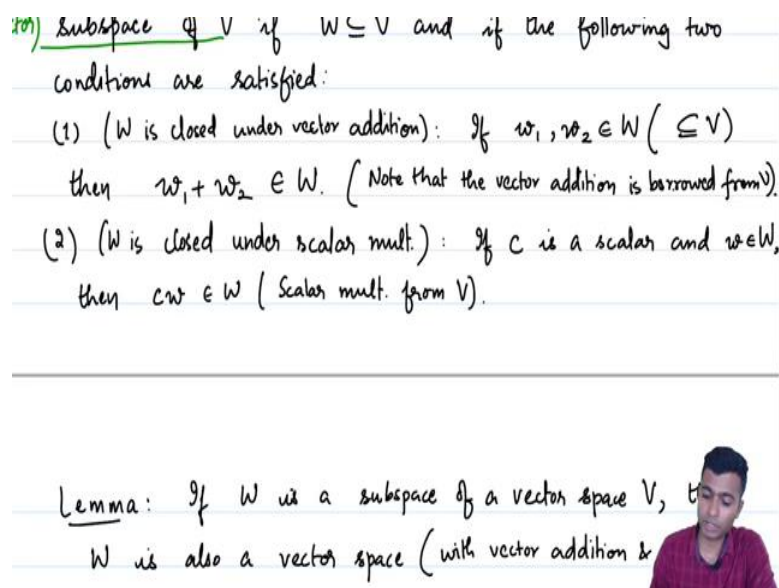 subspace of V if W ⊆ V and if the following two
conditions are satisfied:
(1) (W is closed under vector addition): If w₁, w₂ ∈ W ( ⊆ V)
then w₁ + w₂ ∈ W. (Note that the vector addition is borrowed from V).
(2) (W is closed under scalar mult.): If c is a scalar and w ∈ W,
then cw ∈ W ( Scalar mult. from V).
Lemma: If W is a subspace of a vector space V,
W is also a vector space (with vector addition &